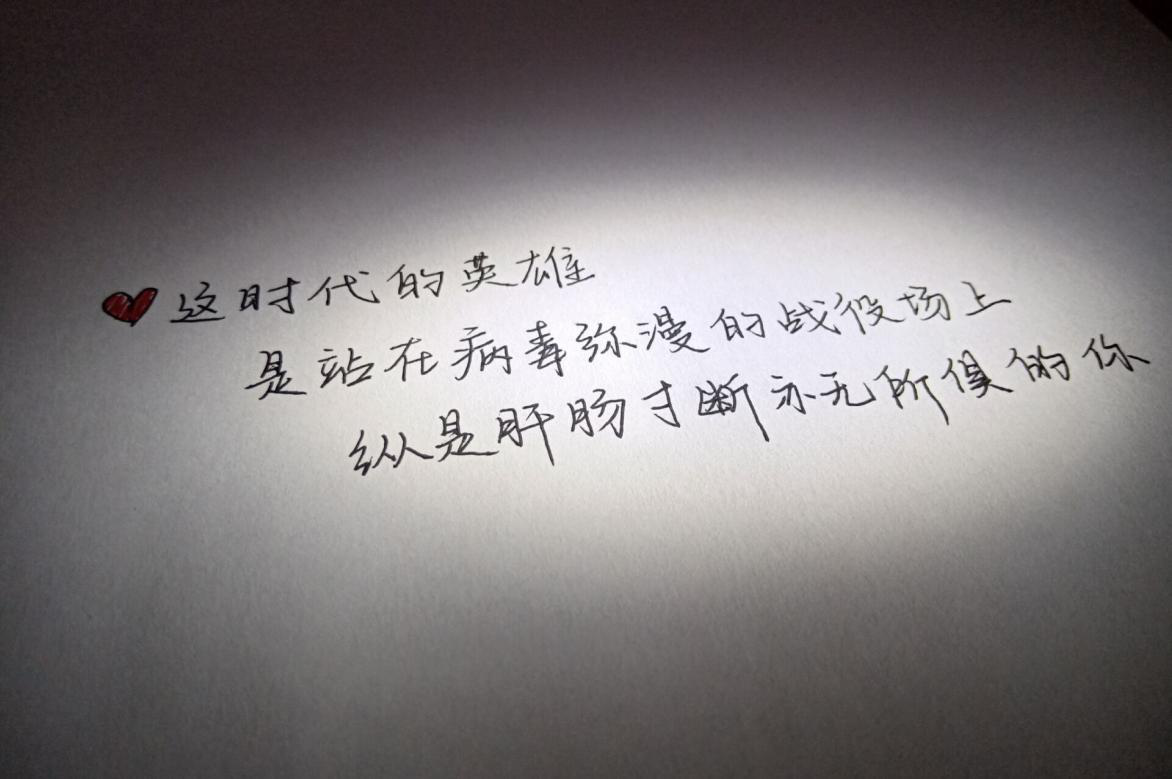 这时代的英雄
是站在病毒弥漫的战役场上
纵是肝肠寸断亦无所俱的你